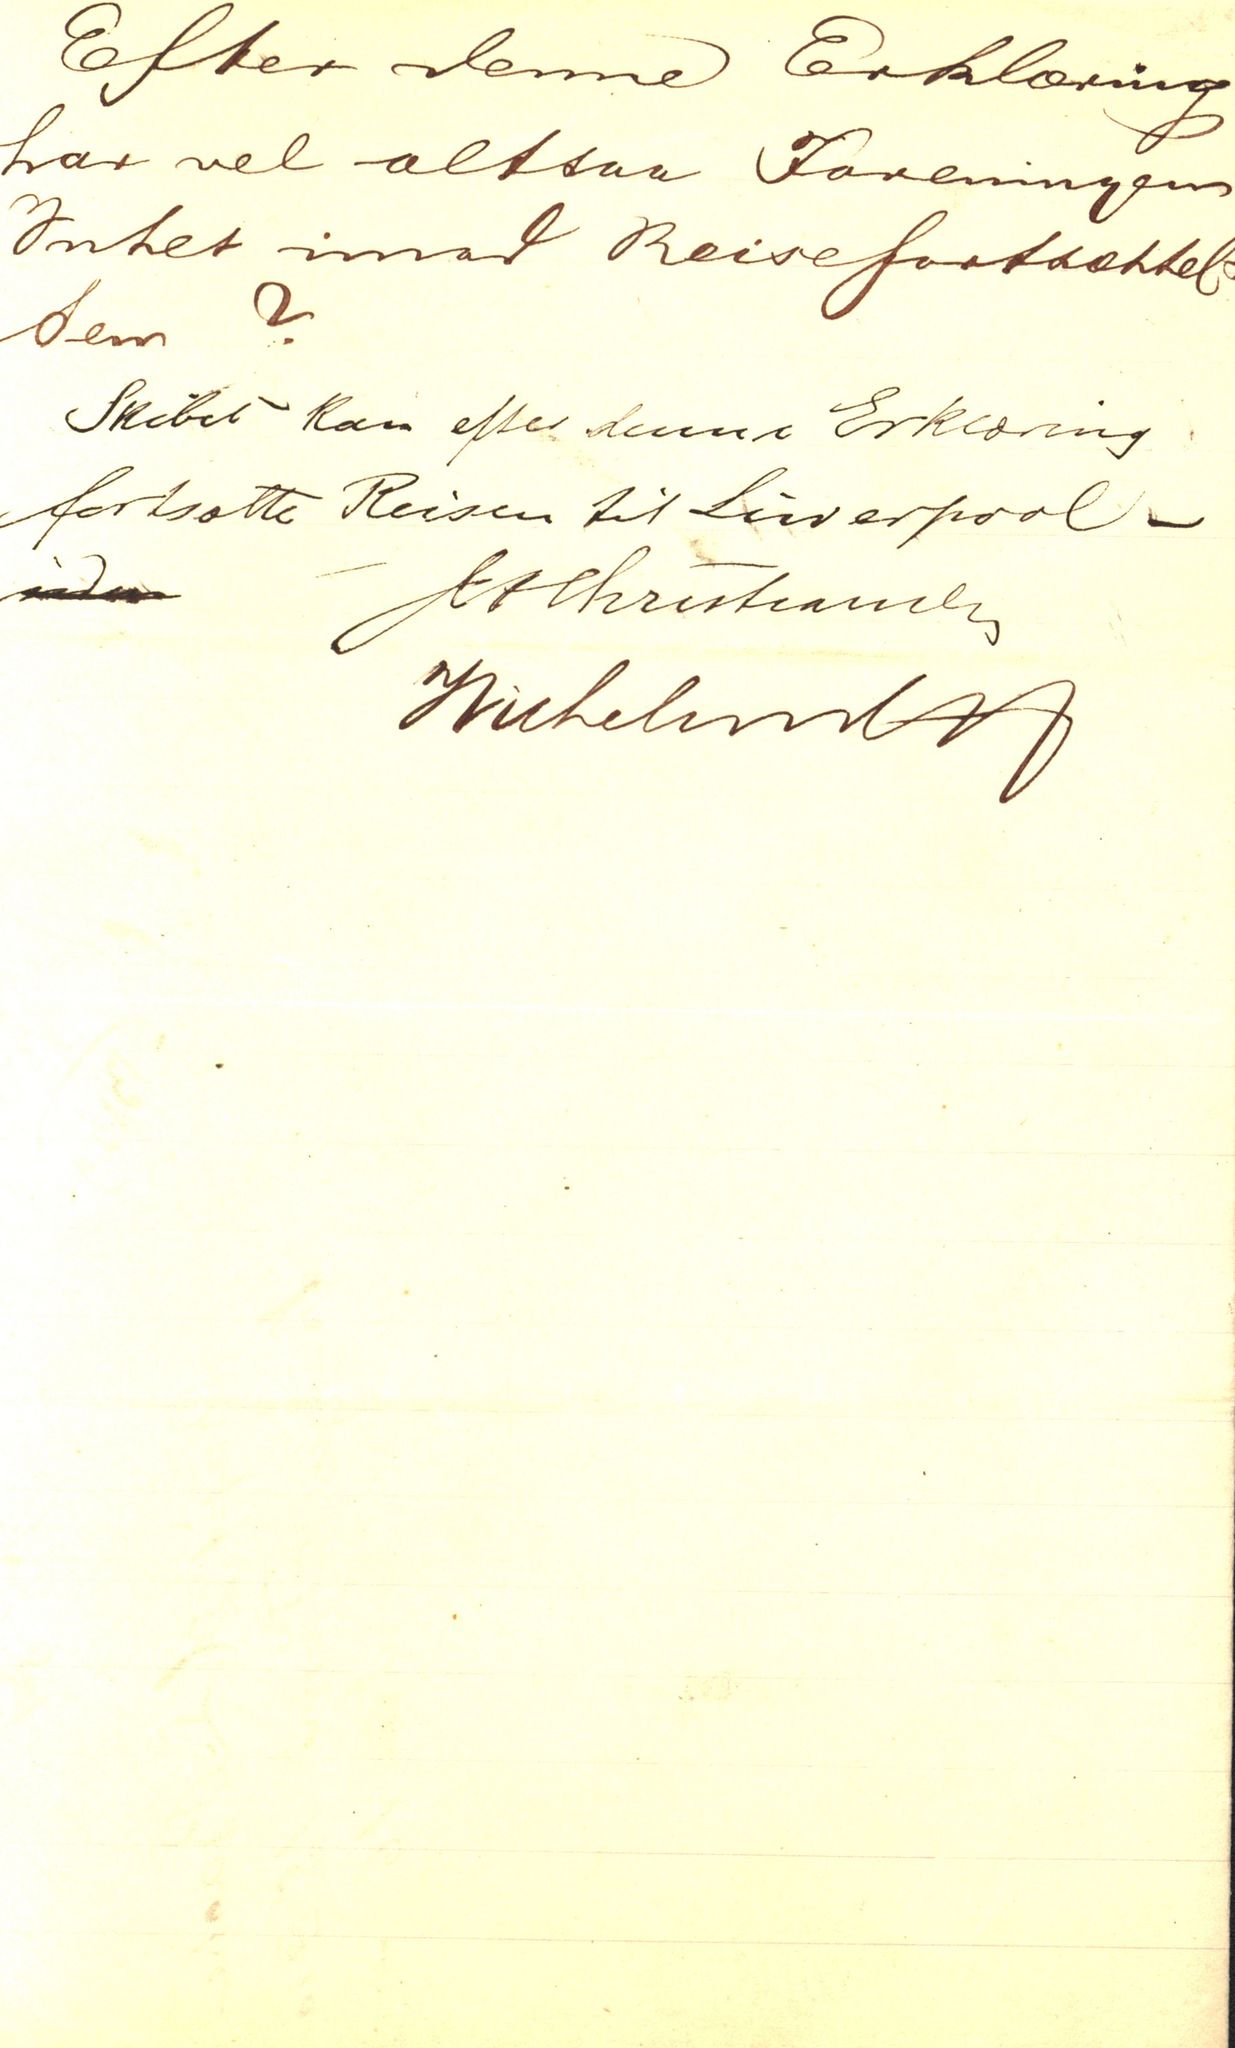 Efter denne Erklæring
har vel altsaa Foreningen
Intet imod Reisefortsættel-
sen ?
Skibet kan efter denne Erklæring
fortsætte Reisen til Liverpool -
Christiansen